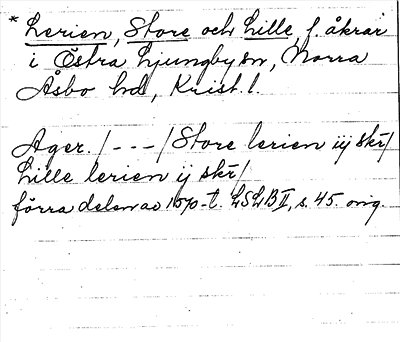 * Lerien, Store och Lille, f. åkrar
i Östra Ljungby sn, Norra
Åsbo hd, Krist. l.
Ager. /---/ Store lerien iij skr/
Lille lerien ij skr/
förra delen av 1570-t. LSLB II, s. 45. orig.